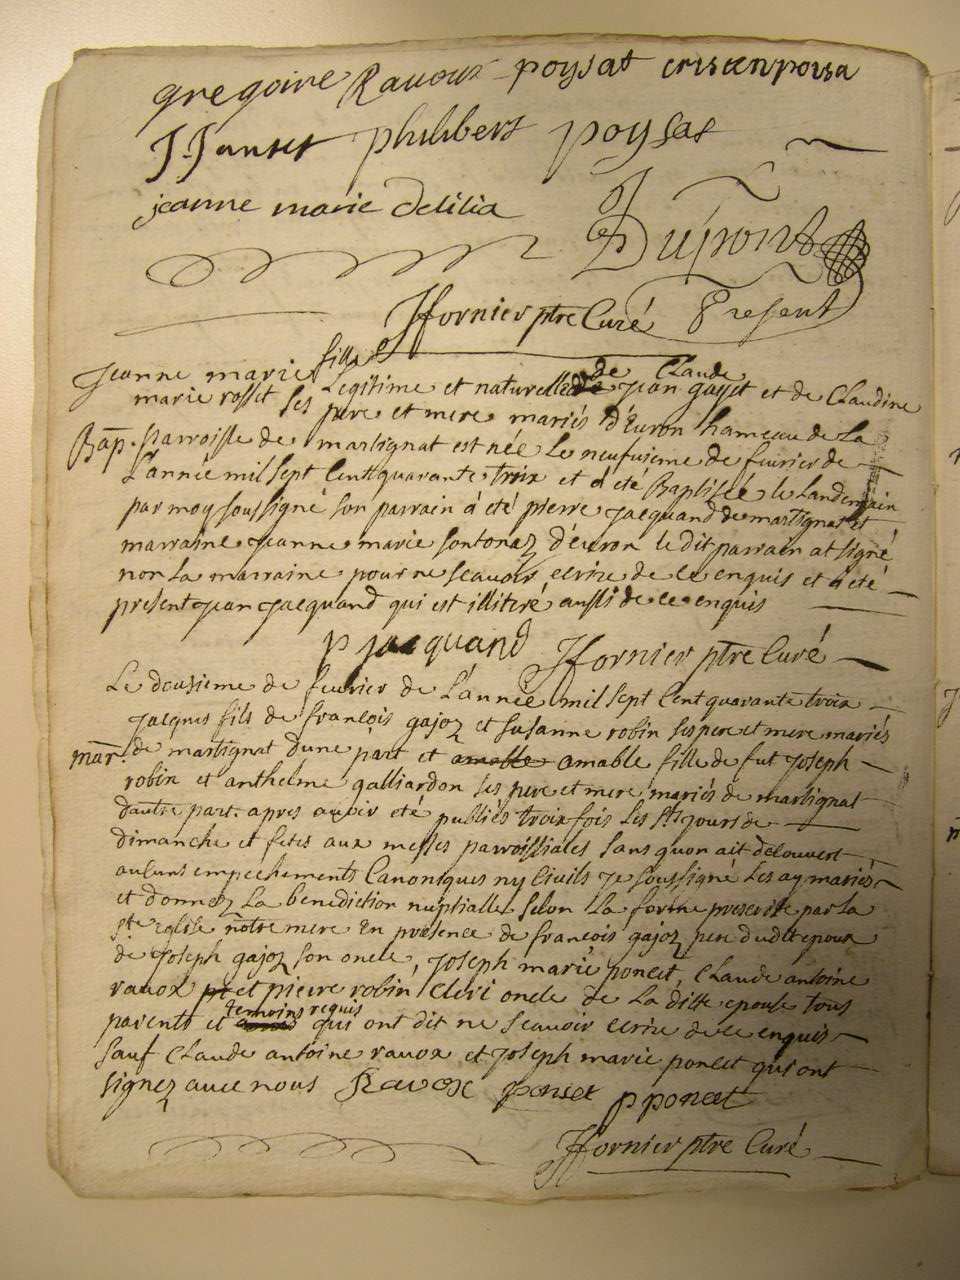 gregoire Ravoux poysat cristin poisa
J. Janset philibert poysat
jeanne marie delilia
Dupont
present
Jfornier ptre Curé
Jeanne marie fille Legitime et naturelle de Claude Jean gasset et de Claudine
marie rosset ses pere et mere mariés d'Evron hameau de La
Bap. parroisse de martignat est née Le neufvieme de fevrier de
L'année mil sept Cent quarante troix et à eté Baptisée le Landemain
par moy soussigné son parrain à eté pierre jacquand de martignat et
marraine jeanne marie sontonaz d'evron le dit parrain at signé
non la marraine pour ne scavoir ecrire de ce enquis et à eté
present jean jacquand qui est illiteré aussi de ce enquis
p jacquand Jfornier ptre Curé
Le dousieme de fevrier de L'année mil sept Cent quarante troix
jacques fils de francois gajoz et susanne robin ses pere et mere mariés
mar. de martignat d'une part et amable amable fille de fut joseph
robin et anthelme galliardon ses pere et mere mariés de martignat
d'autre part. apres avoir eté publiés troix fois les sts jours de
dimanche et fetes aux messes parroissiales sans quon ait decouvert
aucuns empechements Canoniques ny Civils je soussigné Les ay mariés
et donnez La benediction nuptialle selon La forme prescrite par la
ste Eglise notre mere En presence de francois gajoz pere dudit epoux
de joseph gajoz son oncle, joseph marie poncet, Claude antoine
ravox pt et pierre robin Clerc oncle de la ditte epouse tous
parents et temoins requis qui ont dit ne scavoir ecrire de ce enquis
sauf Claude antoine ravox et joseph marie poncet qui ont
signez avec nous Ravox ponset p poncet
Jfornier ptre Curé